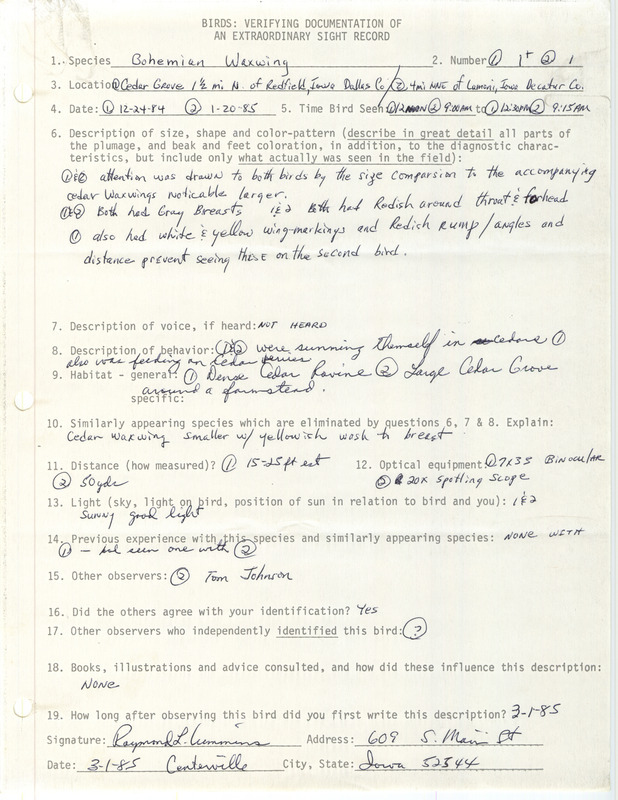 BIRDS: VERIFYING DOCUMENTATION OF
AN EXTRAORDINARY SIGHT RECORD
1. Species Bohemian Waxwing 2. Number ① 1+ ② 1
3. Location ① Cedar Grove 1½ mi N. of Redfield, Iowa Dallas Co. / ② 4 mi NNE of Lamoni, Iowa Decatur Co.
4. Date: ① 12-24-84 ② 1-20-85 5. Time Bird Seen: ① 12 noon ② 9:00AM to ① 12:30PM ② 9:15AM
6. Description of size, shape and color-pattern (describe in great detail all parts of
the plumage, and beak and feet coloration, in addition, to the diagnostic charac-
teristics, but include only what actually was seen in the field):
①&② attention was drawn to both birds by the size comparsion to the accompanying
cedar Waxwings noticable larger.
①&② Both had Gray Breasts 1&2 Both had Redish around throat & forhead
① also had white & yellow wing-markings and Redish rump / angles and
distance prevent seeing these on the second bird.
7. Description of voice, if heard: NOT HEARD
8. Description of behavior: ①&② were sunning themself in cedars ①
also was feeding on Cedar berries
9. Habitat - general: ① Dense Cedar Ravine ② Large Cedar Grove
around a farmstead.
specific:
10. Similarly appearing species which are eliminated by questions 6, 7 & 8. Explain:
Cedar waxwing smaller w/ yellowish wash to breast
11. Distance (how measured)? ① 15-25 ft est 12. Optical equipment: ① 7X35 Binocular
② 50 yds ② 20X spotting scope
13. Light (sky, light on bird, position of sun in relation to bird and you): 1&2
sunny good light
14. Previous experience with this species and similarly appearing species: NONE WITH
① - had seen one with ②
15. Other observers: ② Tom Johnson
16. Did the others agree with your identification? Yes
17. Other observers who independently identified this bird: ?
18. Books, illustrations and advice consulted, and how did these influence this description:
NONE
19. How long after observing this bird did you first write this description? 3-1-85
Signature: Raymond L. Cummins Address: 609 S. Main St
Date: 3-1-85 Centerville City, State: Iowa 52544